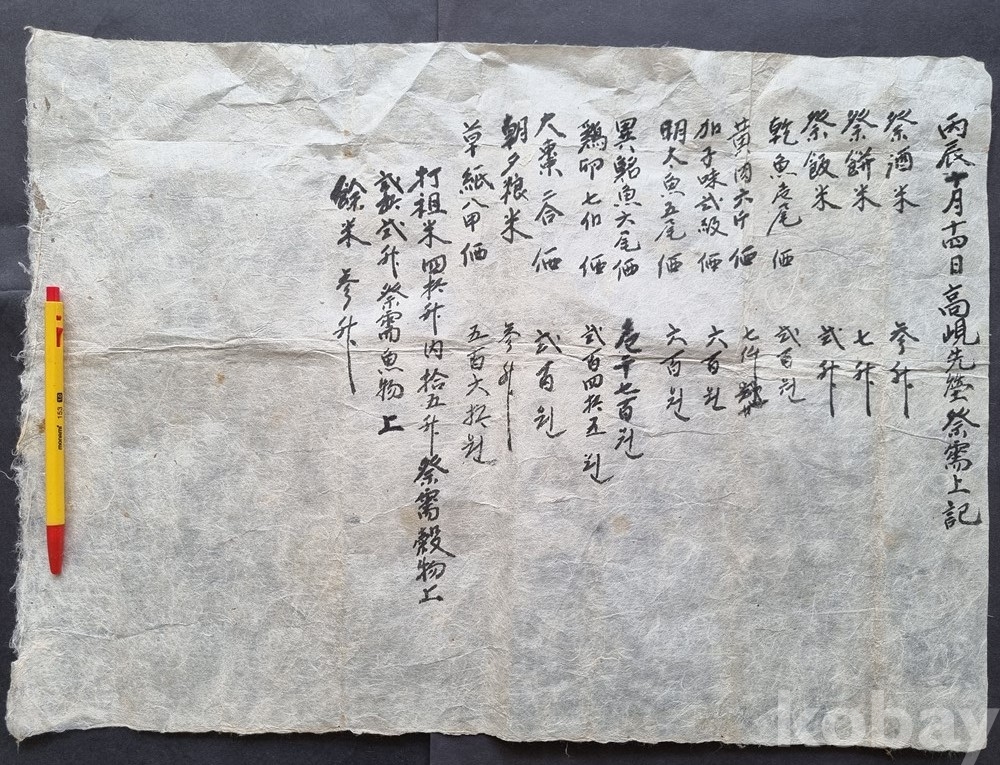 丙辰十月十四日高峴先塋祭需上記
祭酒米 參升
祭餠米 七升
祭飯米 弍升
乾魚壱尾 価 弍百원
黃肉六斤 価 七仟
加子味弍級 価 六百원
明太魚五尾 価 六百원
異鮐魚六尾価 壱千七百원
鷄卵七個 価 弍百四拾五원
大棗二合 価 弍百원
朝夕粮米 參升
草紙八甲 価 五百六拾원
打租米四拾升內拾五升祭需穀物上
弍拾弍升祭需魚物上
餘米 參升
monami 153
kobay